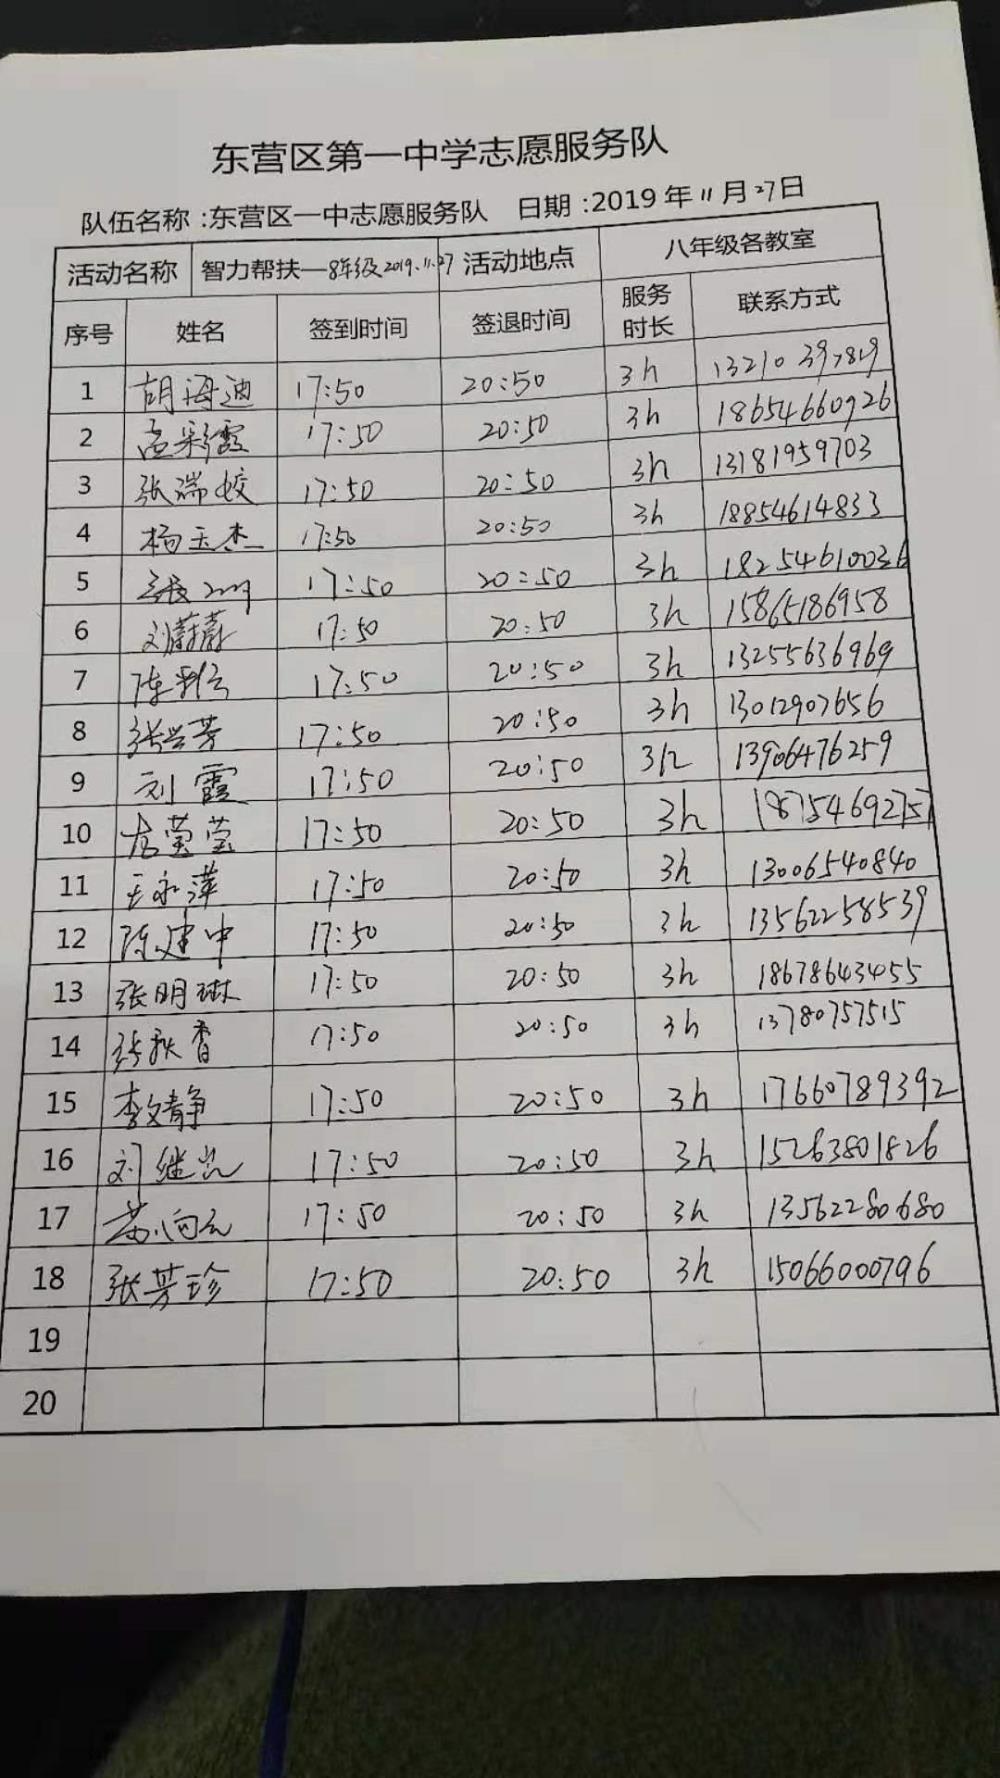 东营区第一中学志愿服务队
队伍名称：东营区一中志愿服务队 日期：2019年11月27日
活动名称 智力帮扶—8年级2019.11.27 活动地点 八年级各教室
序号 姓名 签到时间 签退时间 服务时长 联系方式
1 胡海迪 17:50 20:50 3h 13210397819
2 孟彩霞 17:50 20:50 3h 18654660926
3 张瑞姣 17:50 20:50 3h 13181959703
4 杨玉杰 17:50 20:50 3h 18854614833
5 17:50 20:50 3h 18254610036
6 刘蔚蔚 17:50 20:50 3h 15865186958
7 17:50 20:50 3h 13255636969
8 张兰芳 17:50 20:50 3h 13012907656
9 刘霞 17:50 20:50 3h 13906476259
10 莹莹 17:50 20:50 3h 18754692757
11 王永萍 17:50 20:50 3h 13006540840
12 陈建中 17:50 20:50 3h 13562258539
13 张明琳 17:50 20:50 3h 18678643455
14 张秋香 17:50 20:50 3h 13780757515
15 李文静 17:50 20:50 3h 17660789392
16 刘继岚 17:50 20:50 3h 15263801826
17 17:50 20:50 3h 13562280680
18 张芳珍 17:50 20:50 3h 15066000796
19
20